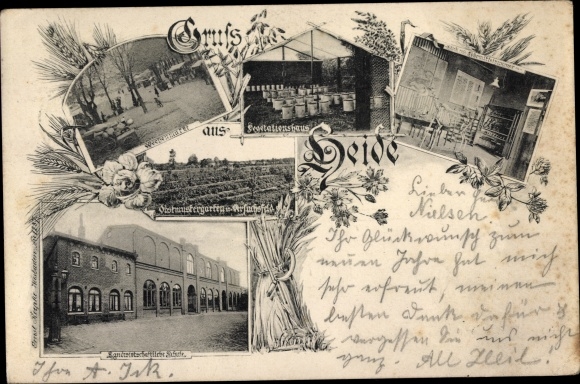 Gruss
aus
Heide
Wochenmarkt
Vegetationshaus
Obstmustergarten u. Versuchsfeld
Landwirtschaftliche Schule.
Lieber
Nielsen
Ihr Glückwunsch zum
neuen Jahre hat mich
sehr erfreut, meinen
besten Dank dafür &
vergessen Sie uns nicht
ganz. All Heil.
Ihre A.